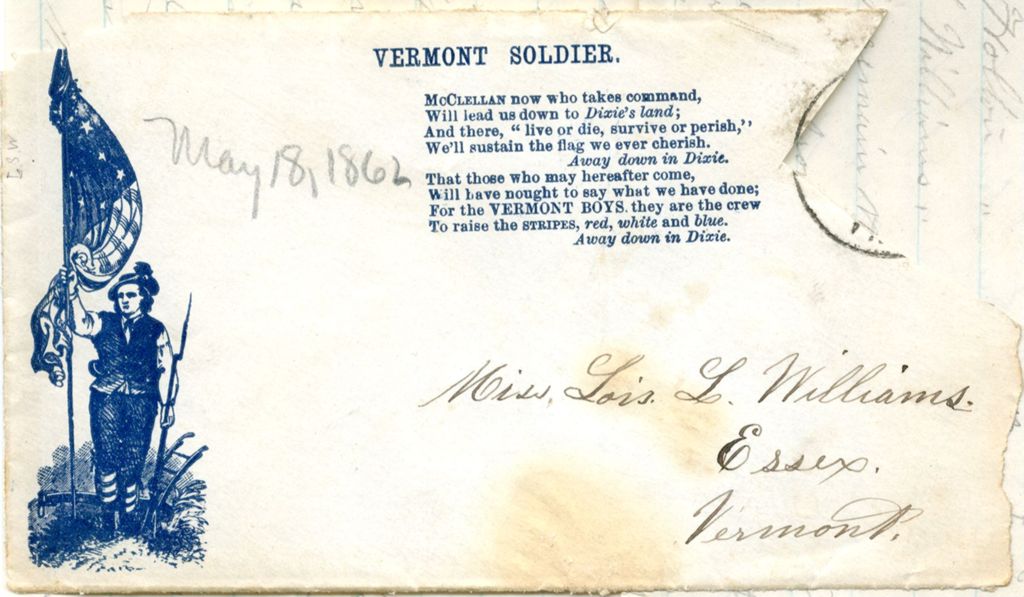 VERMONT SOLDIER.
McCLELLAN now who takes command,
Will lead us down to Dixie's land;
And there, “ live or die, survive or perish,”
We'll sustain the flag we ever cherish.
Away down in Dixie.
That those who may hereafter come,
Will have nought to say what we have done;
For the VERMONT BOYS. they are the crew
To raise the STRIPES, red, white and blue.
Away down in Dixie.
May 18, 1862
LSW
Miss. Lois. L. Williams.
Essex.
Vermont.
Williams